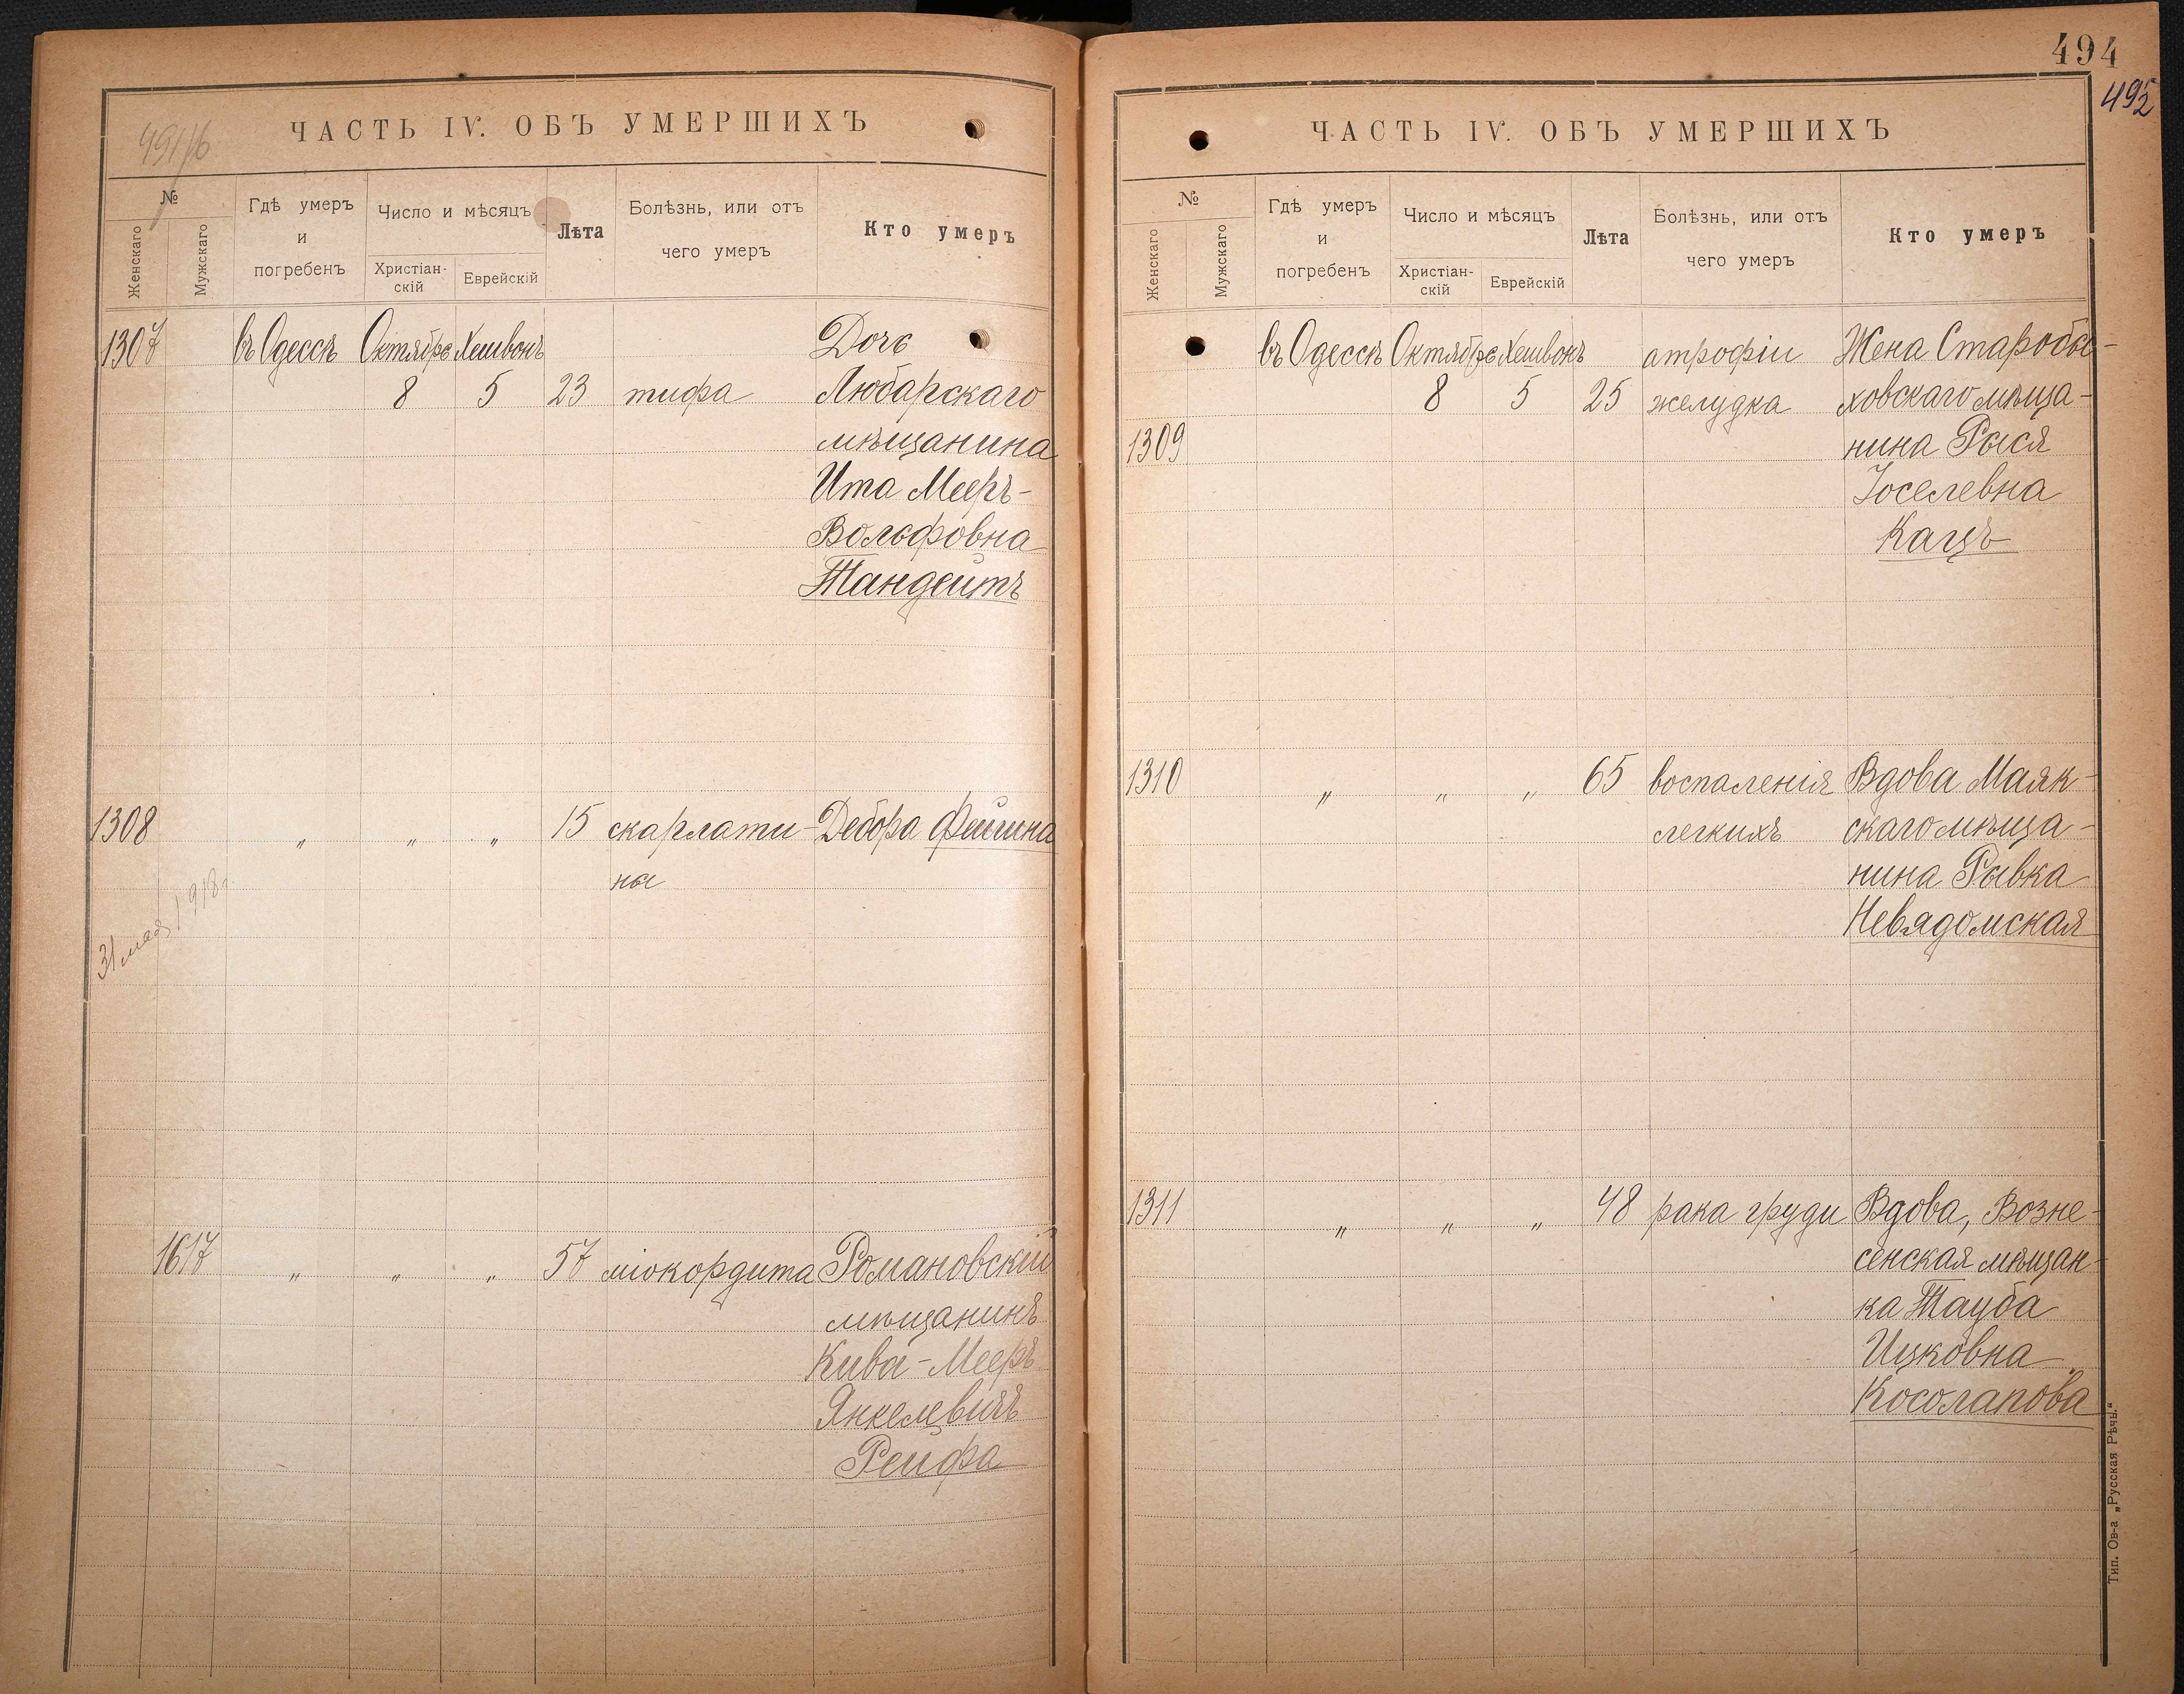 494
495
491/16
ЧАСТЬ IV. ОБЪ УМЕРШИХЪ
№
Женскаго
Мужскаго
Гдѣ умеръ
и
погребенъ
Число и мѣсяцъ
Христіан-
скій
Еврейскій
Лѣта
Болѣзнь, или отъ
чего умеръ
Кто умеръ
1307 въ Одессѣ Октябрь Хешвонъ Дочь
8 5 23 тифа Любарскаго
мѣщанина
Ита Мееръ-
Вольфовна
Тандейтъ
1308 „ „ „ 15 скарлати- Дебора Фейгина
ны
31 мая 1918 г.
1617 „ „ „ 57 міокордита Романовскій
мѣщанинъ
Кива-Мееръ
Янкелевичъ
Рейфа
ЧАСТЬ IV. ОБЪ УМЕРШИХЪ
№
Женскаго
Мужскаго
Гдѣ умеръ
и
погребенъ
Число и мѣсяцъ
Христіан-
скій
Еврейскій
Лѣта
Болѣзнь, или отъ
чего умеръ
Кто умеръ
въ Одессѣ Октябрь Хешвонъ атрофіи Жена Старобы-
8 5 25 желудка ховскаго мѣща-
1309 нина Рыся
Іоселевна
Кацъ
1310 „ „ „ 65 воспаленія Вдова Маяк-
легкихъ скаго мѣща-
нина Рывка
Невядомская
1311 „ „ „ 48 рака груди Вдова, Возне-
сенская мѣщан-
ка Тауба
Ицковна
Косолапова
Тип. Ов-а „Русская Рѣчь."